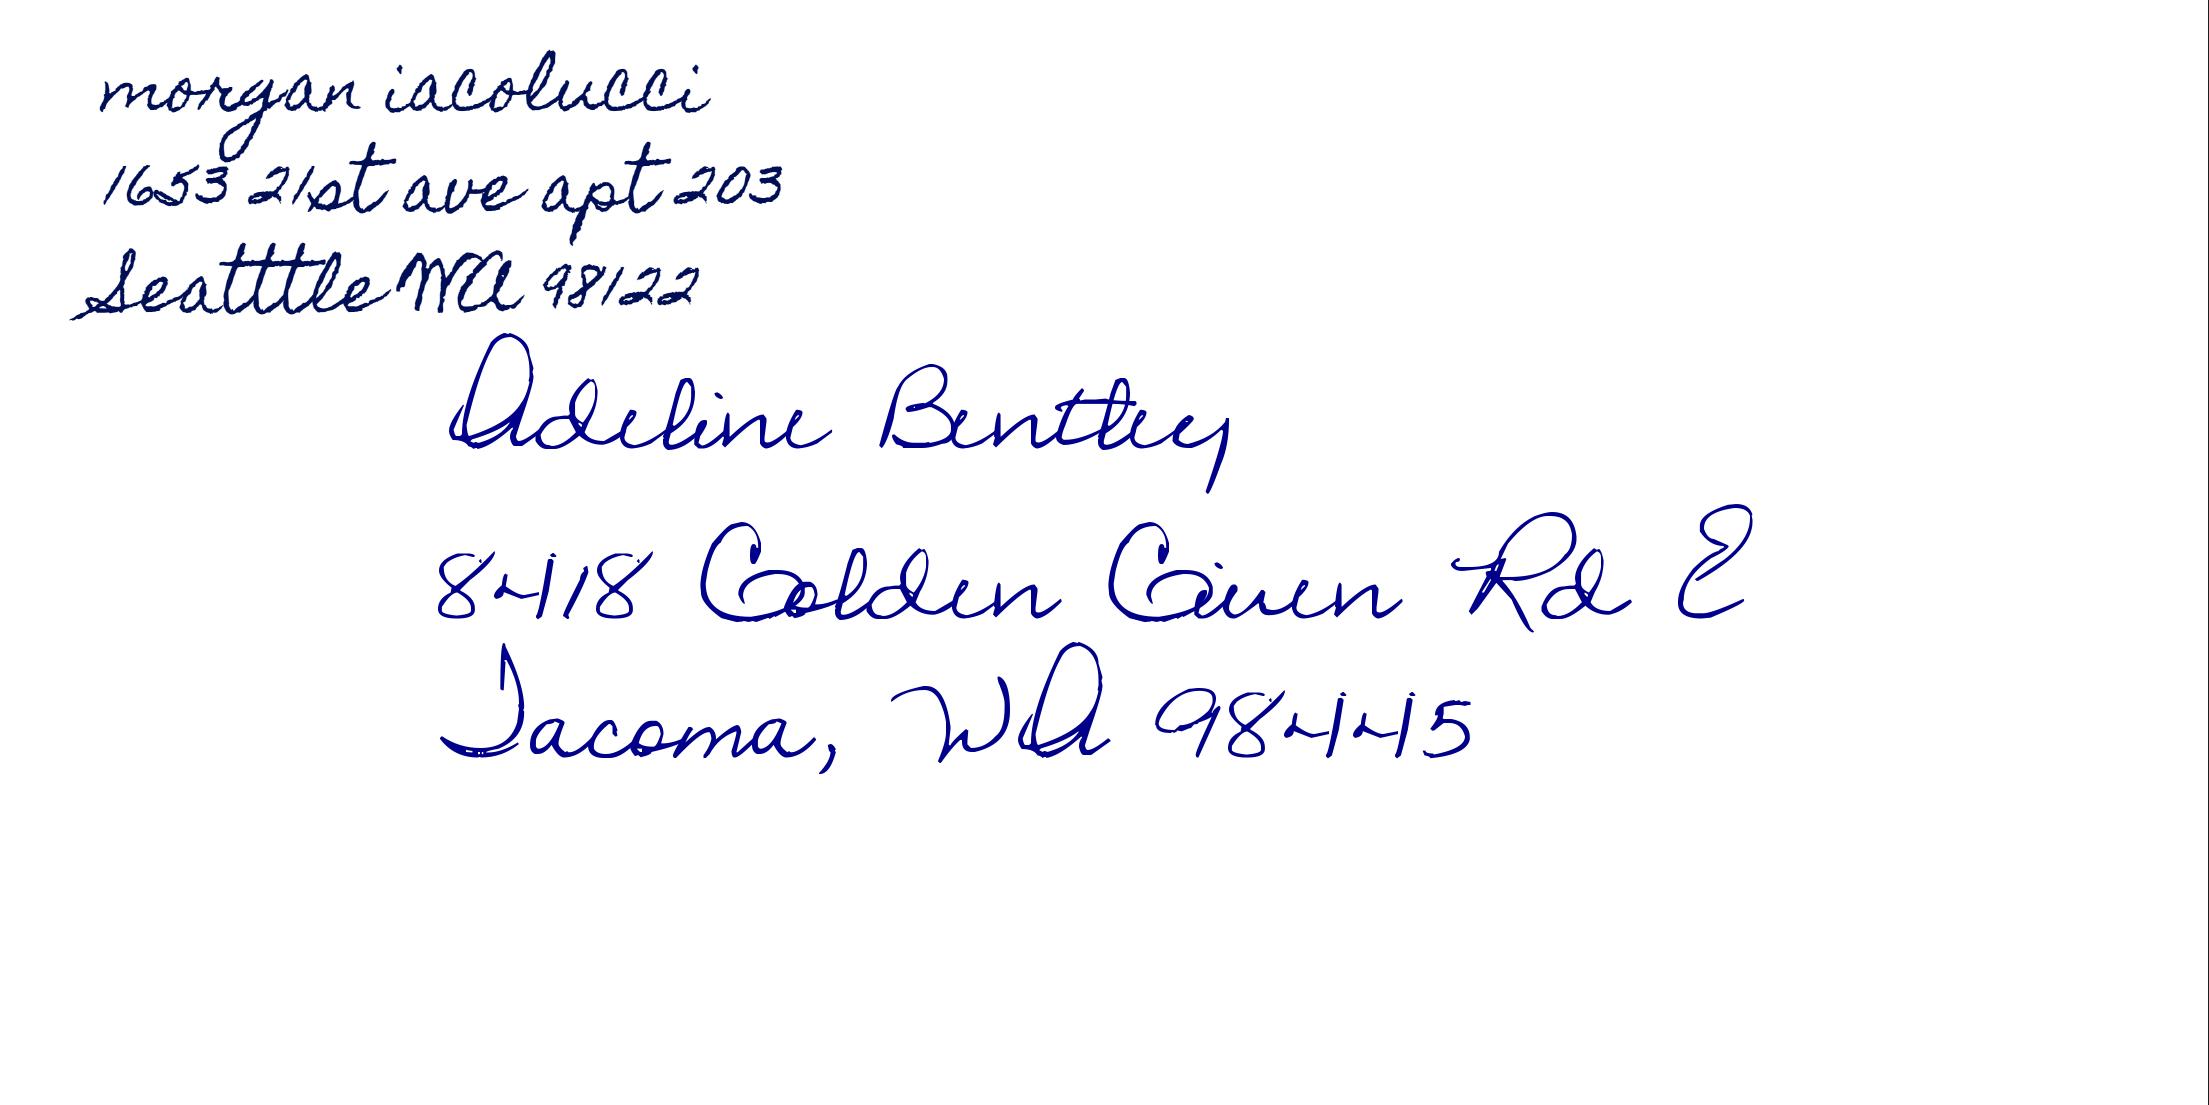 morgan iacolucci
1653 21st ave apt 203
Seatttle WA 98122
Adeline Bentley
8418 Golden Given Rd E
Tacoma, WA 98445